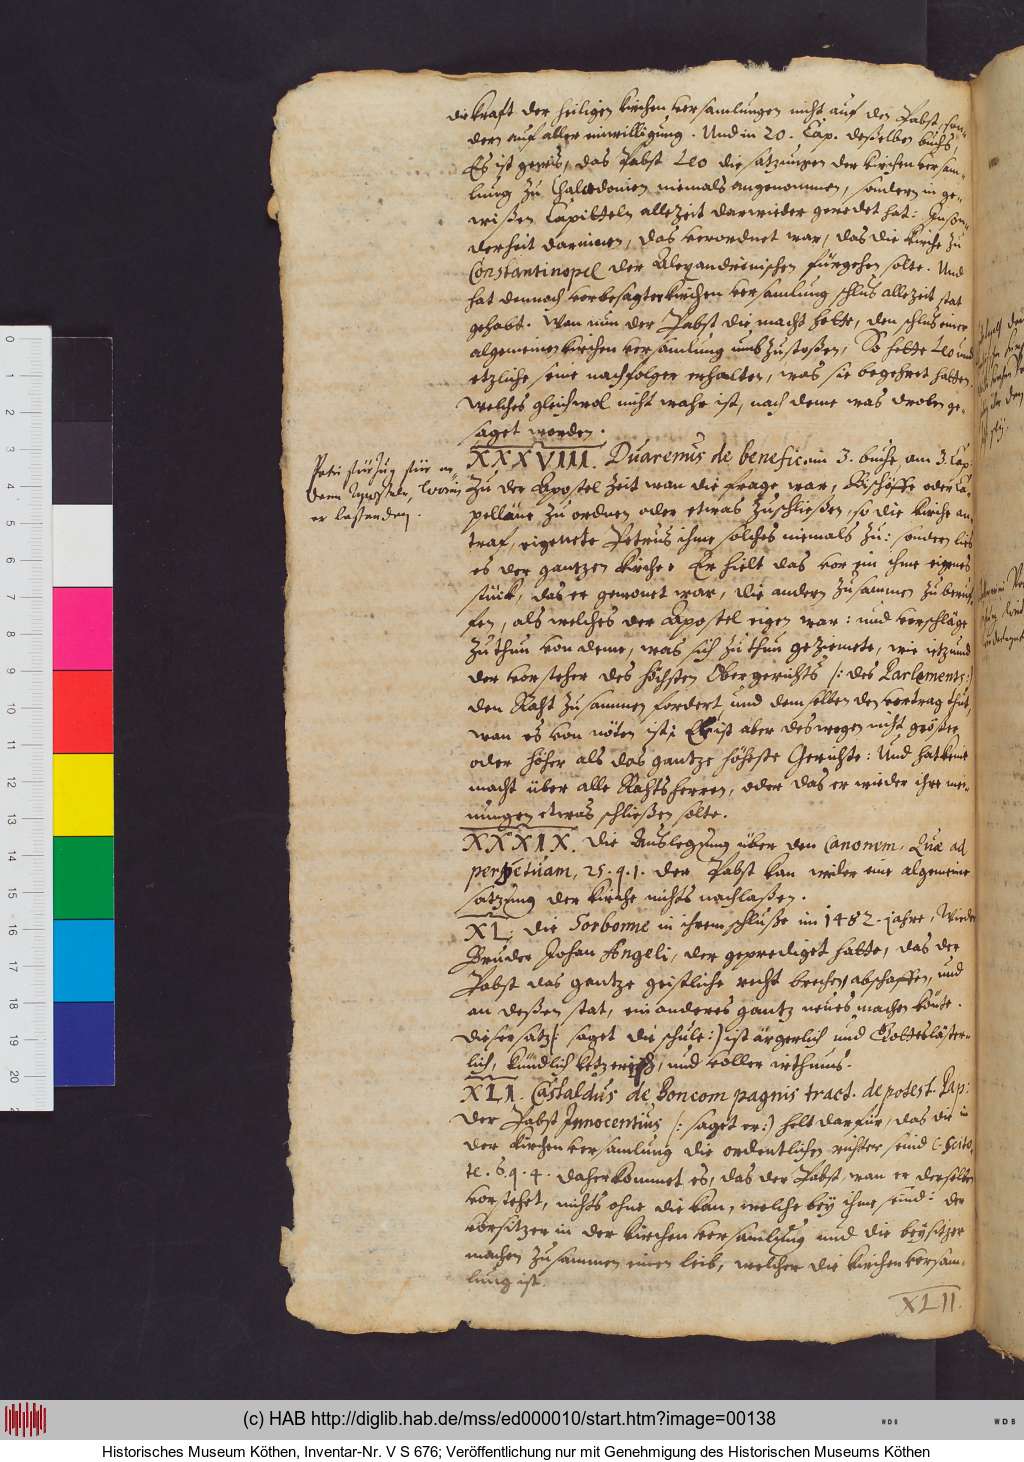 die kraft der heiligen Kirchen versamlungen nicht auf den Pabst, son-
dern auf aller einwilligung. Und in 20. Cap. deßelben buchs,
Es ist gewis, das Pabst Leo die satzungen der kirchen versam-
lung zu Chalcedonien niemals angenommen, sondern in ge-
wißen Capitteln allezeit darwieder geredet hat: Inson-
derheit darinnen, das verordnet war, das die kirche zu
Constantinopel der Alexandrinischen fürgehen solte. Und
hat dennoch vorbesagter kirchen versamlung schlus allezeit stat
gehabt. Wan nun der Pabst die macht hette, den schlus einer
algemeinen kirchen versamlung umbzustoßen, So hette Leo und
etzliche seine nachfolger erhalten, was sie begehret hatten
welches gleichwol nicht wahr ist, nach deme was droben ge-
saget worden.
XXXVIII. Duarenus de benefic. im 3. buche, am 3. Cap.
Zu der Apostel Zeit wan die frage war, Bischöffe oder Ca-
pelläne zu ordnen oder etwas zuschließen, so die kirche an-
traf, eigenete Petrus ihme solches niemals zu: sondern lies
es der gantzen kirche. Er hielt das vor ein ihme eigenes
stück, das er gewonet war, die andern zusammen zu beruf-
fen, als welches der Apostel eigen war: und vorschläge
zu thun von deme, was sich zu thun geziemete, wie itzund
der vorsteher des höchsten Obergerichts /: des Parlements:/
den Raht zusammen fordert, und demselben den vortrag thut,
wan es von nöten ist; Er ist aber deswegen nicht größer
oder höher als das gantze höheste Gerichte: Und hat keine
macht über alle Rahtsherren, oder das er wieder ihre mei-
nungen etwas schließen solte.
Petri fürzug für an-
dern Aposteln, worin
er bestanden.
XXXIX. Die Auslegung über den Canonem, Quæ ad
perpetuam, 25. q. 1. der Pabst kan wider eine algemeine
satzung der kirche nichts nachlaßen.
XL. die Sorbonne in ihrem schluße im 1482. jahre, Wieder
Bruder Johan Angeli, der geprediget hatte, das der
Pabst das gantze geistliche recht brechen, abschaffen, und
an deßen stat, ein anderes gantz neues machen könte.
Dieser satz (: saget die schule:) ist ärgerlich und Gotteslester-
lich, kündlich ketzerisch, und voller irthums.
XLI. Castaldus de Boncompagnis tract. de potest. Pap:
Der Pabst Innocentius (: saget er:) helt darfür, das die in
der Kirchen versamlung die ordentlichen richter seind
6. q. 4. daher kommet es, das der Pabst, wan er derselben
vorstehet, nichts ohne die kan, welche bey ihme seind: der
vorsitzer in der kirchen versamlung und die beysitzer
machen zusammen einen leib, welcher die kirchen versam-
lung ist.
XLII.
(c) HAB http://diglib.hab.de/mss/ed000010/start.htm?image=00138
Historisches Museum Köthen, Inventar-Nr. V S 676; Veröffentlichung nur mit Genehmigung des Historischen Museums Köthen